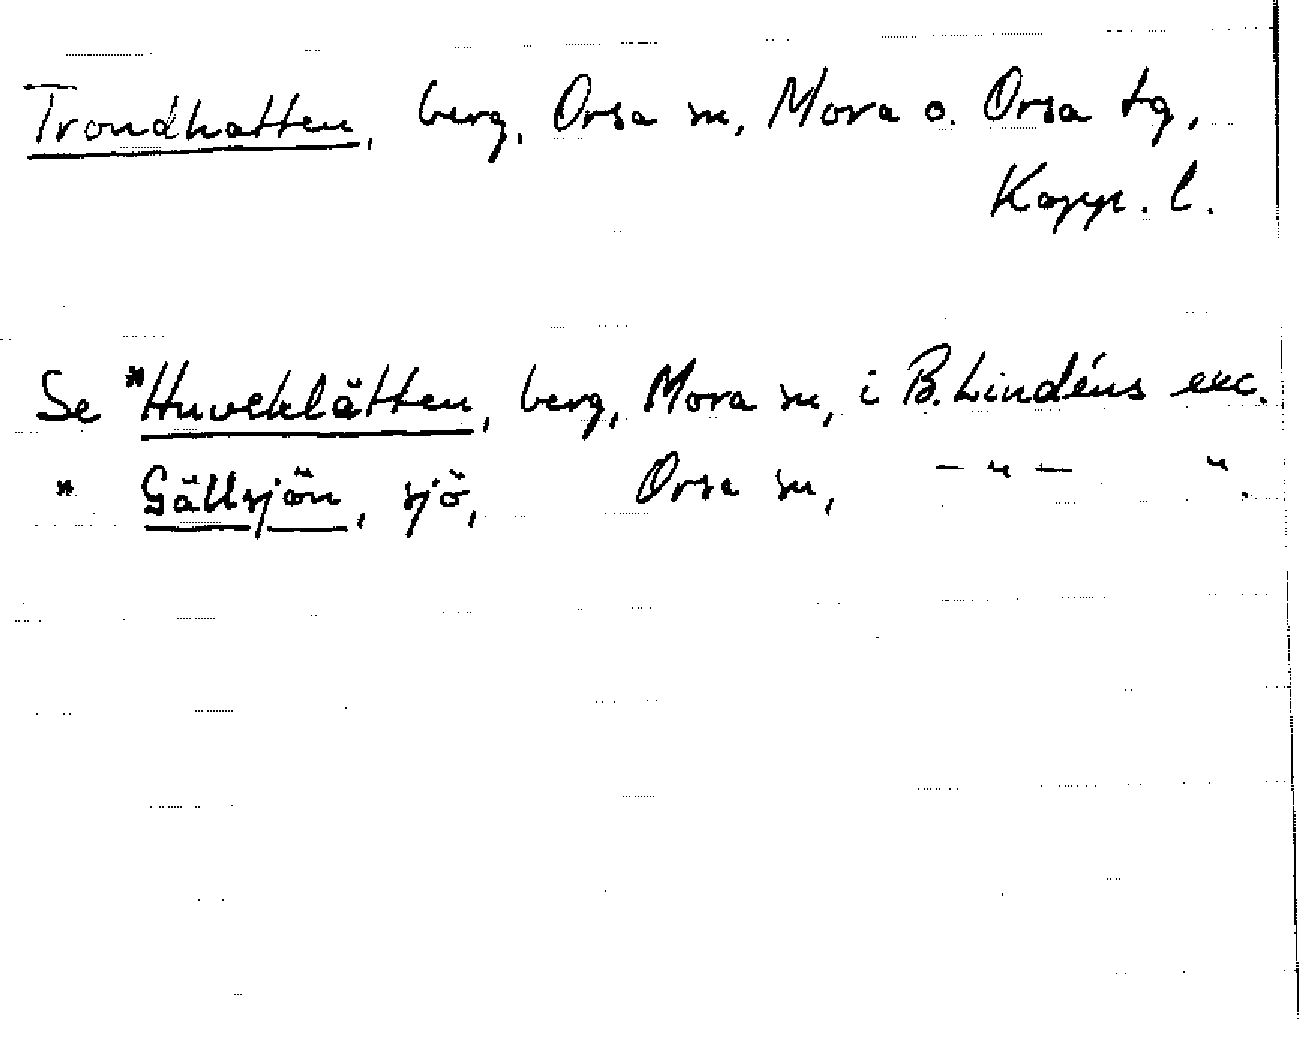 Trondhatten, berg, Orsa sn, Mora o. Orsa tg,
Kopp. l.
Se *Huveklätten, berg, Mora sn, i B. Lindéns exc.
" Gällsjön, sjö, Orsa sn, — " — ".